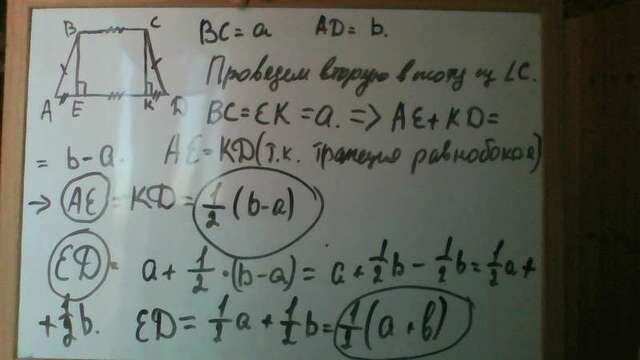 B C BC = a AD = b.
Проведем вторую высоту из ∠C.
A E K D BC = EK = a. => AE + KD =
= b-a. AE = KD (т.к. трапеция равнобокая)
→ AE = KD = 1/2 (b-a)
ED = a + 1/2 · (b-a) = a + 1/2 b - 1/2 b = 1/2 a +
+ 1/2 b. ED = 1/2 a + 1/2 b = 1/2 (a + b)